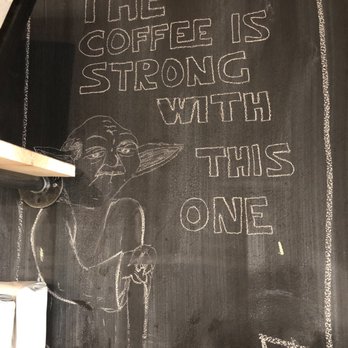 THE
COFFEE IS
STRONG
WITH
THIS
ONE